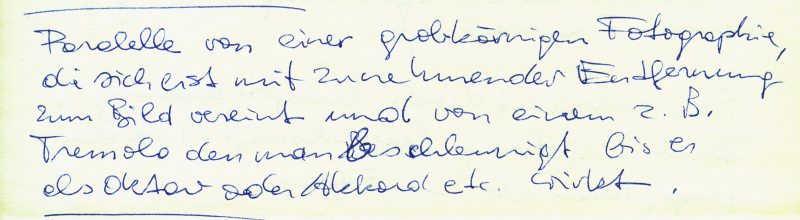 Paralelle von einer grobkörnigen Fotographie,
di sich erst mit zunehmender Entfernung
zum Bild vereint und von einem z. B.
Tremolo den man Beschleunigt bis er
als Oktav oder Akkord etc. wirkt.